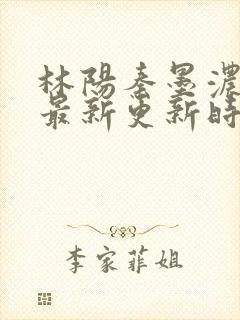 林陽秦墨濃
最新更新時
李家菲姐